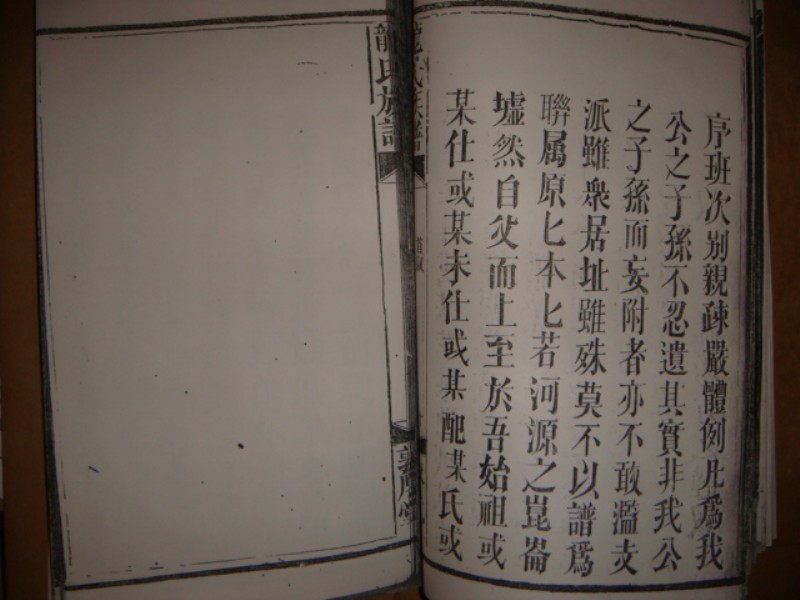 序班次别親疎嚴體例凡爲我
公之子孫不忍遺其實非我公
之子孫而妄附者亦不敢濫支
派雖衆居址雖殊莫不以譜爲
聨属原匕本匕若河源之崑崙
墟然自父而上至於吾始祖或
某仕或某未仕或某配某氏或
龍氏族譜
龍氏族譜
敦厚堂